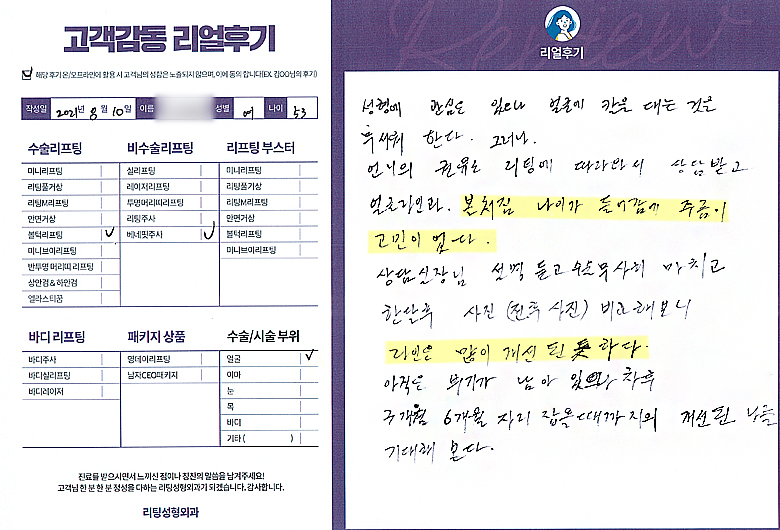 고객감동 리얼후기
해당 후기 온/오프라인에 활용 시 고객님의 성함은 노출되지 않으며, 이에 동의 합니다(EX. 김OO님의 후기)
작성일 2021년 8월 10일 이름 성별 여 나이 53
수술리프팅
미니리프팅
리팅풀거상
리팅M리프팅
안면거상
볼턱리프팅 ✓
미니브이리프팅
반투명 머리띠 리프팅
상안검 & 하안검
엘라스티꿈
비수술리프팅
실리프팅
레이저리프팅
투명머리띠리프팅
리팅주사
베네핏주사 ✓
리프팅 부스터
미니리프팅
리팅풀거상
리팅M리프팅
안면거상
볼턱리프팅
미니브이리프팅
바디 리프팅
바디주사
바디실리프팅
바디레이저
패키지 상품
영데이리프팅
남자CEO패키지
수술/시술 부위
얼굴 ✓
이마
눈
목
바디
기타 ( )
진료를 받으시면서 느끼신 점이나 칭찬의 말씀을 남겨주세요!
고객님 한 분 한 분 정성을 다하는 리팅성형외과가 되겠습니다. 감사합니다.
리팅성형외과
Review
리얼후기
성형에 관심은 있으나 얼굴에 칼을 대는 것을
무서워 한다. 그러나.
언니의 권유로 리팅에 따라와서 상담받고
얼굴라인과. 볼처짐 나이가 들어감에 주름이
고민이 없다.
상담실장님 설명 듣고 수술무사히 마치고
한달후 사진 (전후 사진) 비교해보니
라인은 많이 개선 된 듯 하다.
아직은 붓기가 남아 있으나 차후
3개월 6개월 자리 잡을때까지의 개선된 나를
기대해 본다.